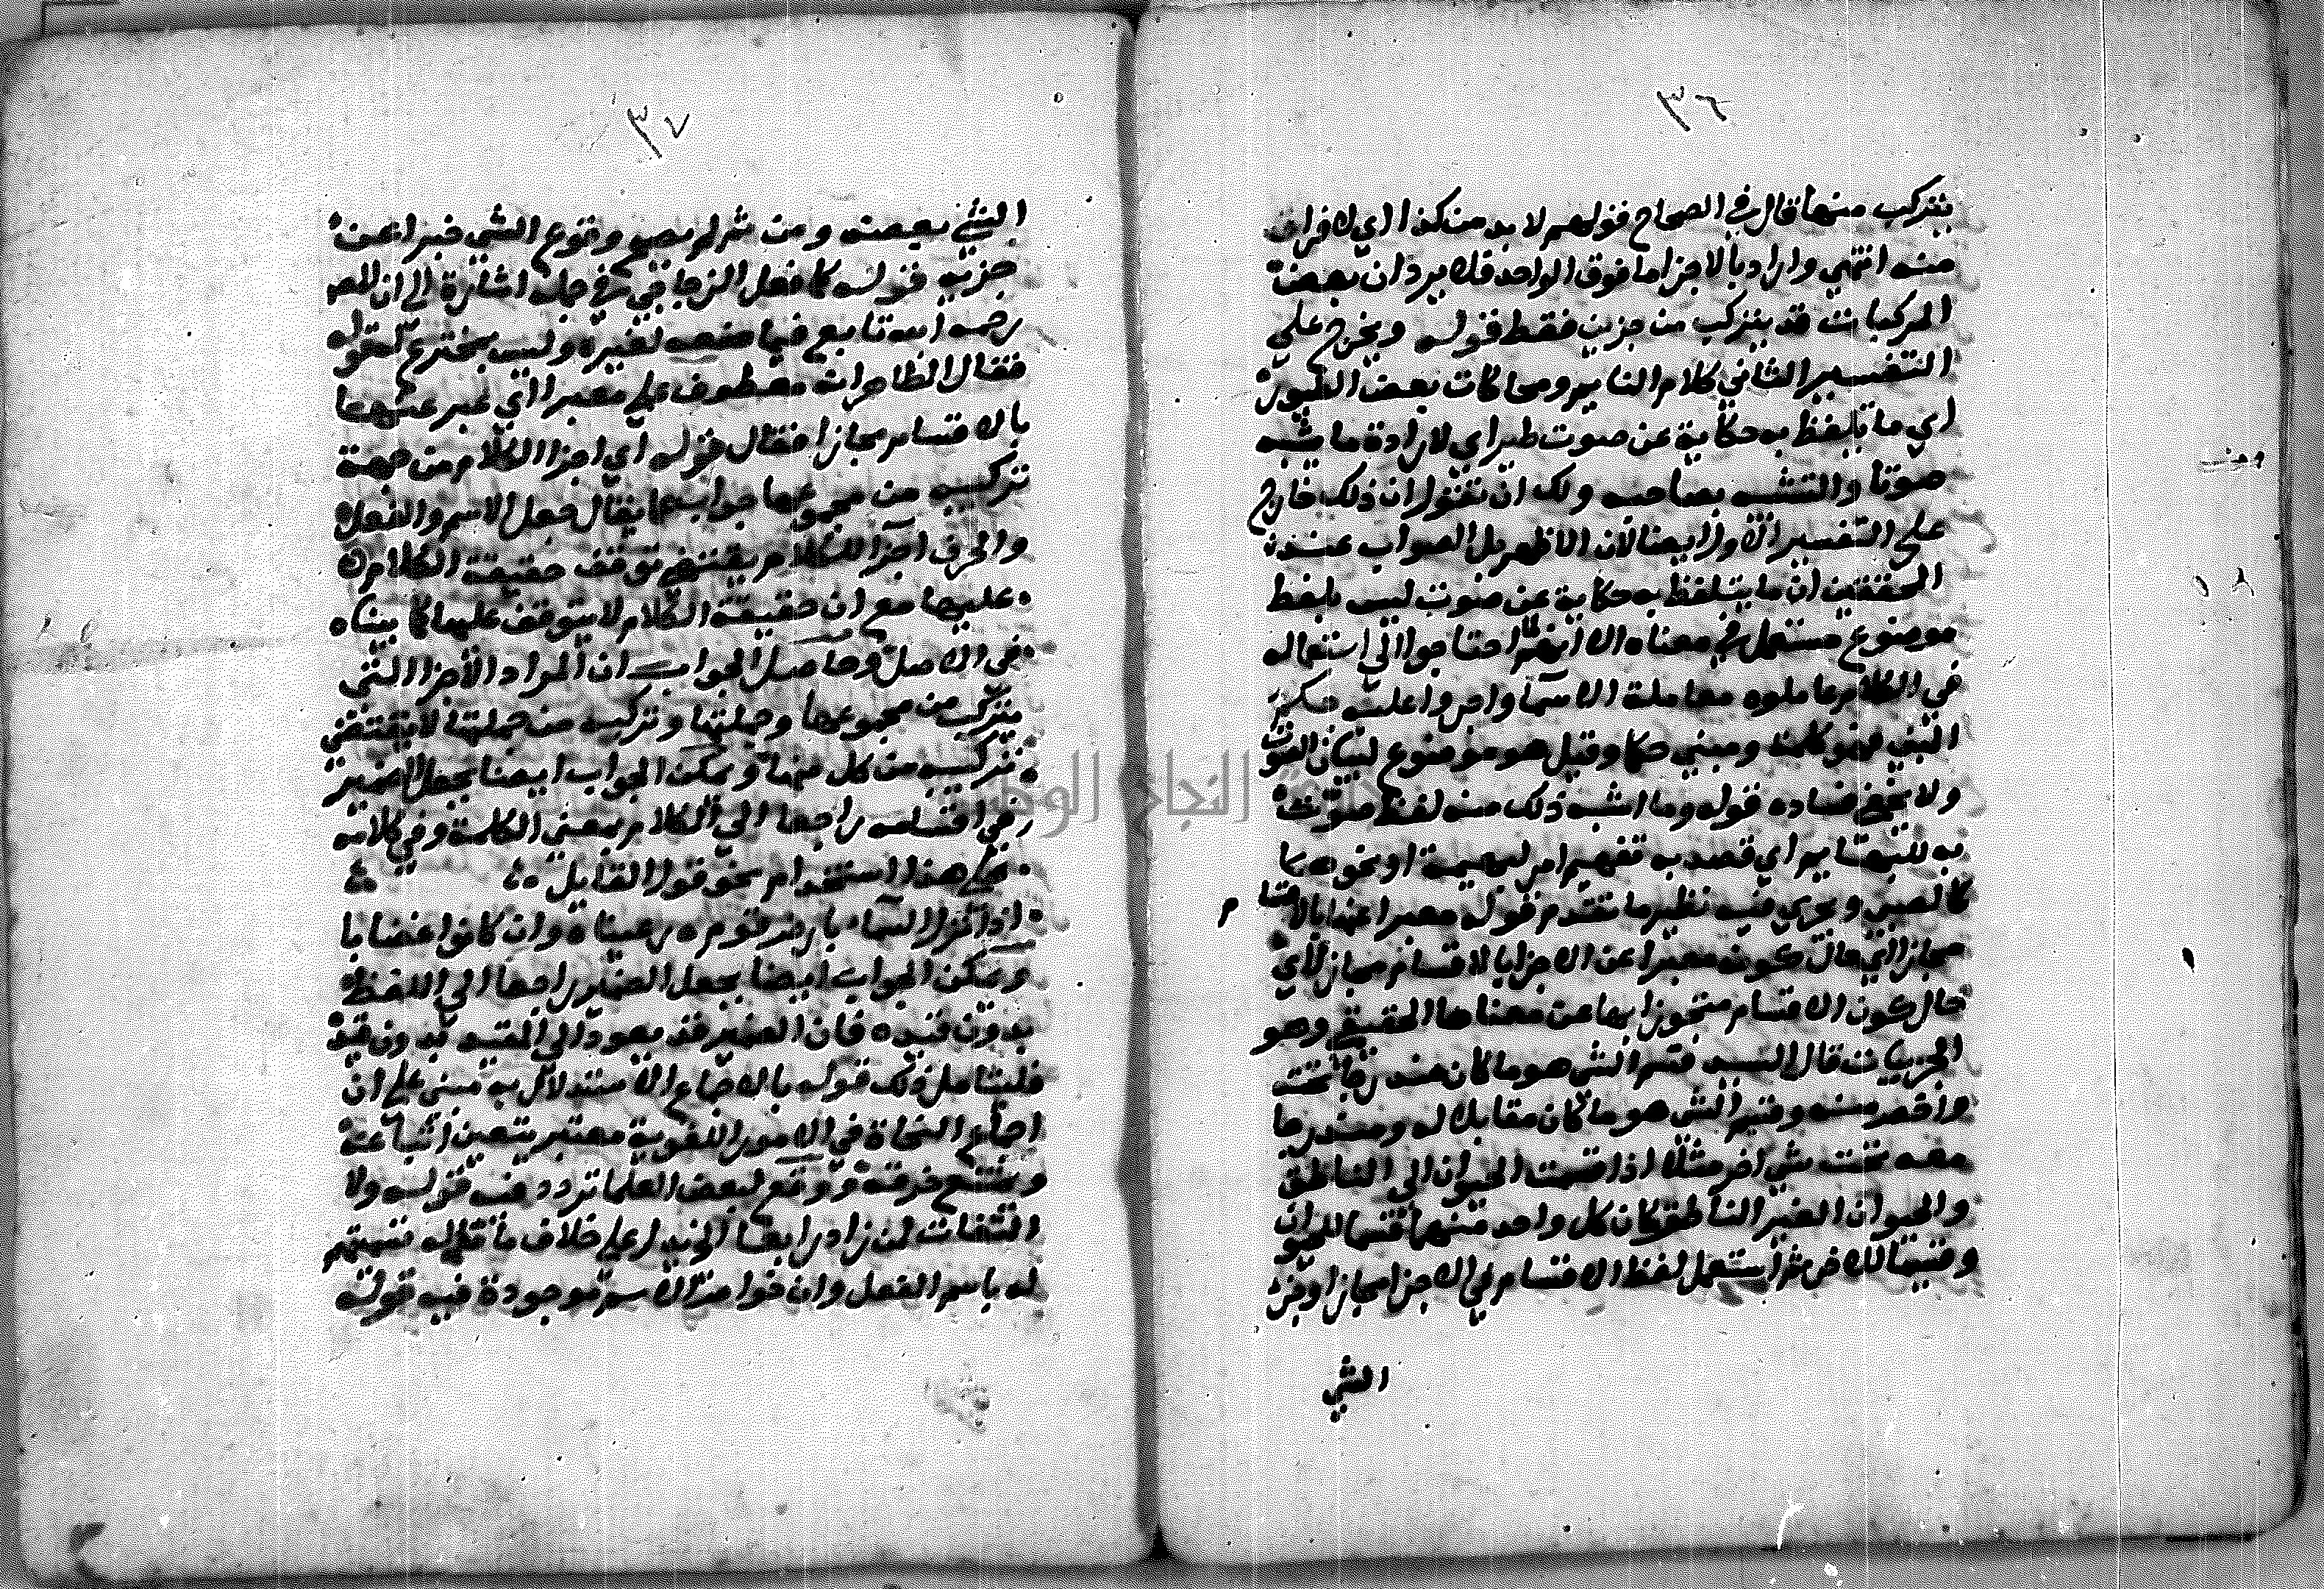 ٣٦
يتركب منها قال في الصحاح قولهم لا بد من كذا اي لا فراق
منه انتهى واراد بالاجزا ما فوق الواحد فلا يرد ان بعض
المركبات قد يتركب من جزين فقط قوله ويخرج على
التفسير الثاني كلام النايم ومحاكات بعض الطيور
اي ما تلفظ به حكاية عن صوت طير اي لارادة ما يشبه
صوتا والتشبه بصاحبه ولك ان تقول ان ذلك خارج
على التفسير الاول ايضا لان الاظهر بل الصواب عند
المحققين ان ما يتلفظ به حكاية عن صوت ليس بلفظ
موضوع مستعمل في معناه الا انهم لما احتاجوا الى استعماله
في الكلام عاملوه معاملة الاسما واجروا عليه حكم
المبني فهو كلمة ومبني حكما وقيل هو موضوع لبيان الصوت
ولا يخفى فساده قوله وما اشبه ذلك منه لفظ صوت
به للبهايم اي قصد به تفهيم امر لبهيمة او نحوها
كالصبي ويجري فيه نظير ما تقدم قوله معبرا عنها بالاقسام
مجازا اي حال كونه معبرا عن الاجزا بالاقسام مجازا اي
حال كون الاقسام متجوزا بها عن معناها الحقيقي وهو
الجزييات قال السيد قسم الشي هو ما كان مندرجا تحته
واخص منه وقسيم الشي هو ما كان مقابلا له ومندرجا
معه تحت شي اخر مثلا اذا قسمت الحيوان الى الناطق
والحيوان الغير الناطق كان كل واحد منهما قسما للحيوان
وقسيما للاخر ثم استعمل لفظ الاقسام في الاجزا مجازا وجز
الشي
٣٧
الشي بعضه ومن ثم لم يصح وقوع الشي خبرا عن
جزيه قوله كما فعل الزجاجي في جمله اشارة الى ان المص
رحمه الله تابع فيما صنعه لغيره وليس بمخترع له قوله
فقال الظاهر انه معطوف على معبرا اي عبر عنها
بالاقسام مجازا فقال قوله اي اجزا الكلام من جهة
تركيبه من مجموعها جواب عما يقال جعل الاسم والفعل
والحرف اجزا للكلام يقتضي توقف حقيقة الكلام
عليها مع ان حقيقة الكلام لا يتوقف عليها كما بيناه
في الاصل وحاصل الجواب ان المراد الاجزا التي
يتركب من مجموعها وجملتها وتركيبه من جملتها لا يقتضي
تركيبه من كل منها ويمكن الجواب ايضا بجعل الضمير
في اقسامه راجعا الى الكلام بمعنى الكلمة وفي كلامه
على هذا استخدام نحو قول القايل
اذا نزل السماء بارض قوم رعيناه وان كانوا غضابا
ويمكن الجواب ايضا بجعل الضمير راجعا الى اللفظ
بدون قيده فان الضمير قد يعود الى المقيد بدون قيد
فليتامل ذلك قوله بالاجماع الاستدلال به مبني على ان
اجماع النحاة في الامور اللغوية معتبر يتعين اتباعه
ويمتنع خرقه ووقع لبعض العلما تردد فيه قوله ولا
التفات لمن زاد رابعا الخ يدل على خلاف ما قاله تسميتهم
له باسم الفعل وان خواص الاسم موجودة فيه قوله